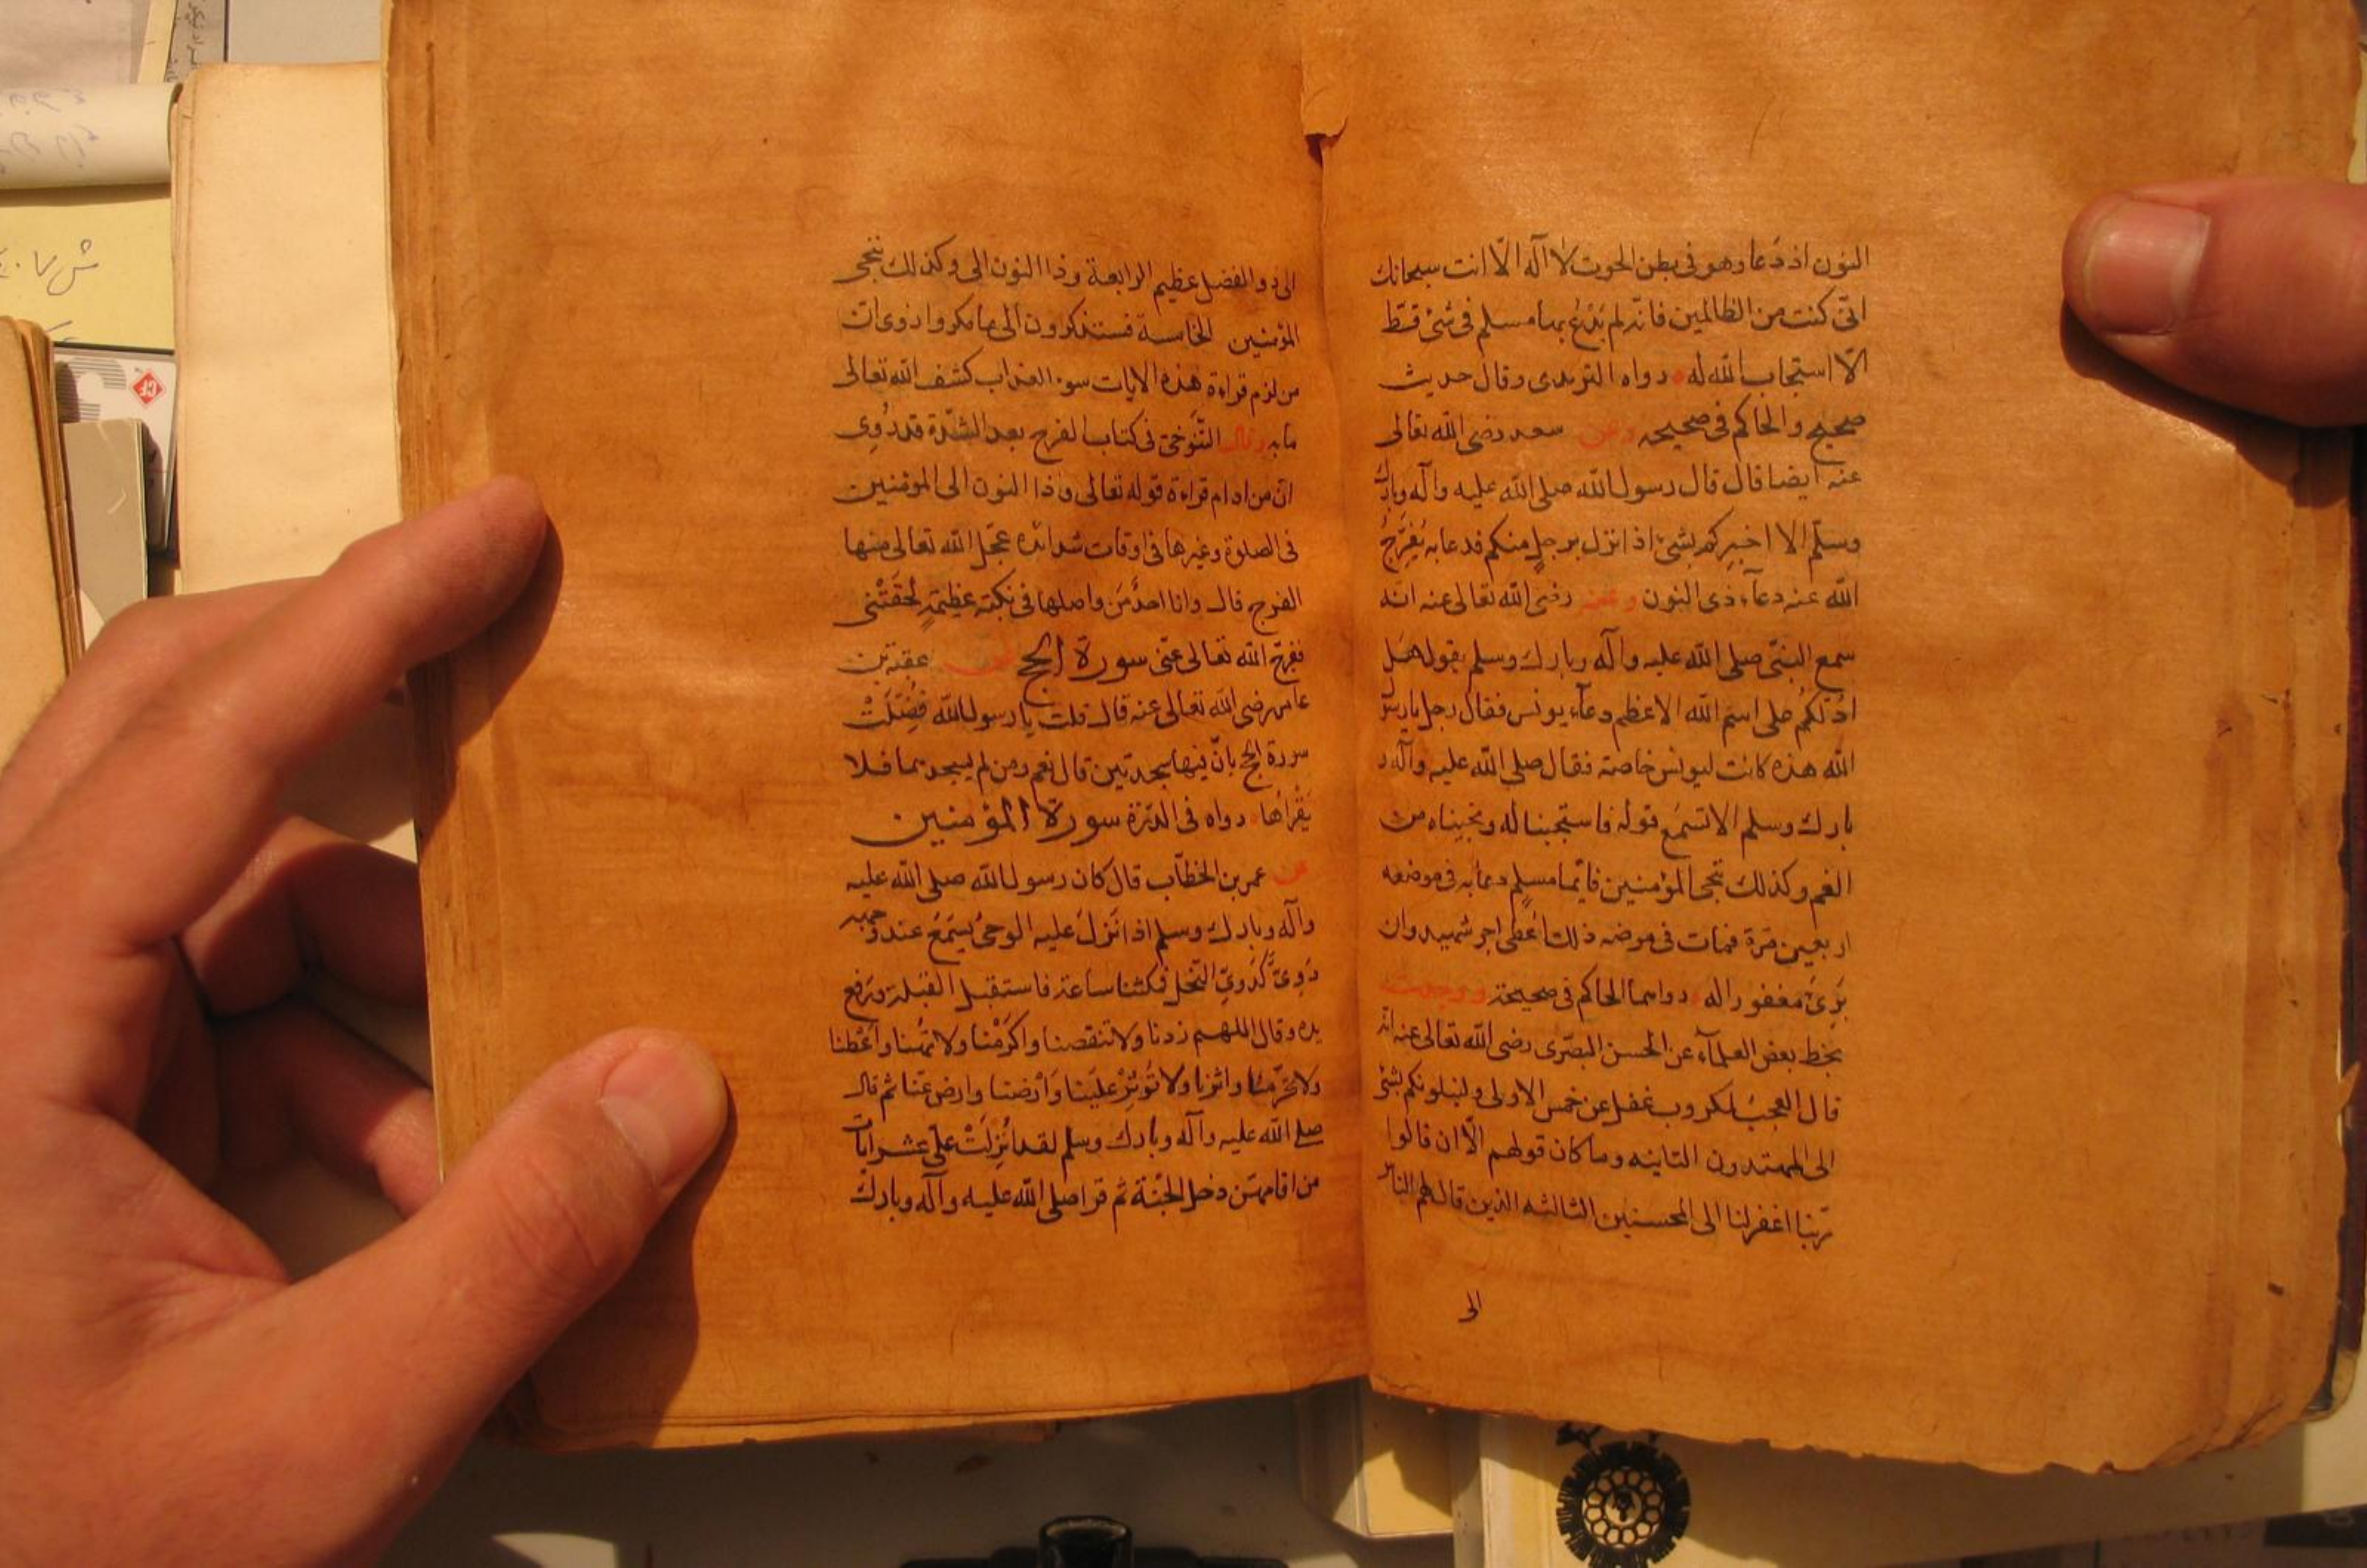 النون اذ دَعا وهو فى بطن الحوت لا اله الّا انت سبحانك
انّى كنت من الظالمين فانّه لم يَدْعُ بها مسلم فى شئ قطّ
الّا استجاب الله له رواه الترمدى وقال حديث
صحيح والحاكم فى صحيحه وعن سعد رضى الله تعالى
عنه ايضا قال قال رسول الله صلى الله عليه وآله وبارك
وسلّم الا اخبركم بشئ اذا نزل برجلٍ منكم فدعا به يُفَرِّجُ
الله عنه دعآء ذى النون وعنه رضى الله تعالى عنه انه
سمع النبىّ صلى الله عليه وآله وبارك وسلم يقول هَل
ادُلّكُم على اسم الله الاعظم دعآء يونس فقال رجل يا رسول
الله هذه كانت ليونس خاصة فقال صلى الله عليه وآله و
بارك وسلم الا تسمَع قوله فاستجبنا له ونجّيناه من
الغم وكذلك ننجى المؤمنين فايّما مسلمٍ دعا به فى موضعه
اربعين مَرّة فمات فى موضه ذلك اُعطى اجر شهيد وان
بَرِئَ مغفورا له رواهما الحاكم فى صحيحه ووجدت
بخط بعض العلمآء عن الحسن البصرى رضى الله تعالى عنه انه
قال العجبُ لمكروب غفل عن خمس الاولى ولنبلونكم بشئ
الى المهتدون الثانيه وما كان قولهم الّا ان قالوا
ربّنا اغفر لنا الى المحسنين الثالثه الذين قال لهم الناس
الى
الى ذو الفضل عظيم الرابعة وذا النون الى وكذلك ننجى
المؤمنين الخامسة فستذكرون الى ما مكروا
من لزم قراءة هذه الايات سوء العذاب كشف الله تعالى
ما به وقال التَّنوخىّ فى كتاب الفرج بعد الشدّة قد رُوِى
انّ من ادام قراءة قوله تعالى وذا النون الى المؤمنين
فى الصلوة وغيرها فى اوقات شدائده عجّل الله تعالى منها
الفرج قال وانا احدٌ مَن واصلها فى نكبة عظيمةٍ لَحقَتْنى
ففرجّ الله تعالى عنّى سورة الحج عن عقبة بن
عامر رضى الله تعالى عنه قال قلت يا رسول الله فُضِّلَتْ
سورة الحج بانّ فيها سجدتين قال نعم ومن لم يسجدهما فلا
يَقْرأها رواه فى الدّرة سورة المؤمنين
عن عمر بن الخطّاب قال كان رسول الله صلى الله عليه
وآله وبارك وسلم اذا نَزَلَ عليه الوحىُ يُسمَعُ عند وجهه
دَوِىٌّ كدَوِىِّ النحل فمكثنا ساعة فاستقبل القبلة ورفع
يده وقال اللهم زدنا ولا تنقصنا واكرمْنا ولا تهُنّا واَعْطنا
ولا تحرّمنا واثرنا ولا تُوْثِرْ علَينا وَاَرْضنا وارض عنّا ثم قال
صلى الله عليه وآله وبارك وسلم لقد اُنْزِلَتْ علَىّ عشر ايات
من اقامهنّ دخل الجنّة ثم قرا صلى الله عليه وآله وبارك